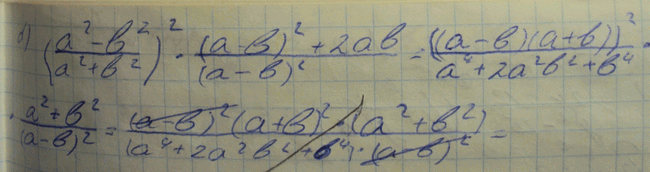 б) (a²-b²/a²+b²)² · (a-b)²+2ab/(a-b)² = ((a-b)(a+b))²/a⁴+2a²b²+b⁴ ·
· a²+b²/(a-b)² = (a-b)²(a+b)²·(a²+b²)/(a⁴+2a²b²+b⁴)·(a-b)² =